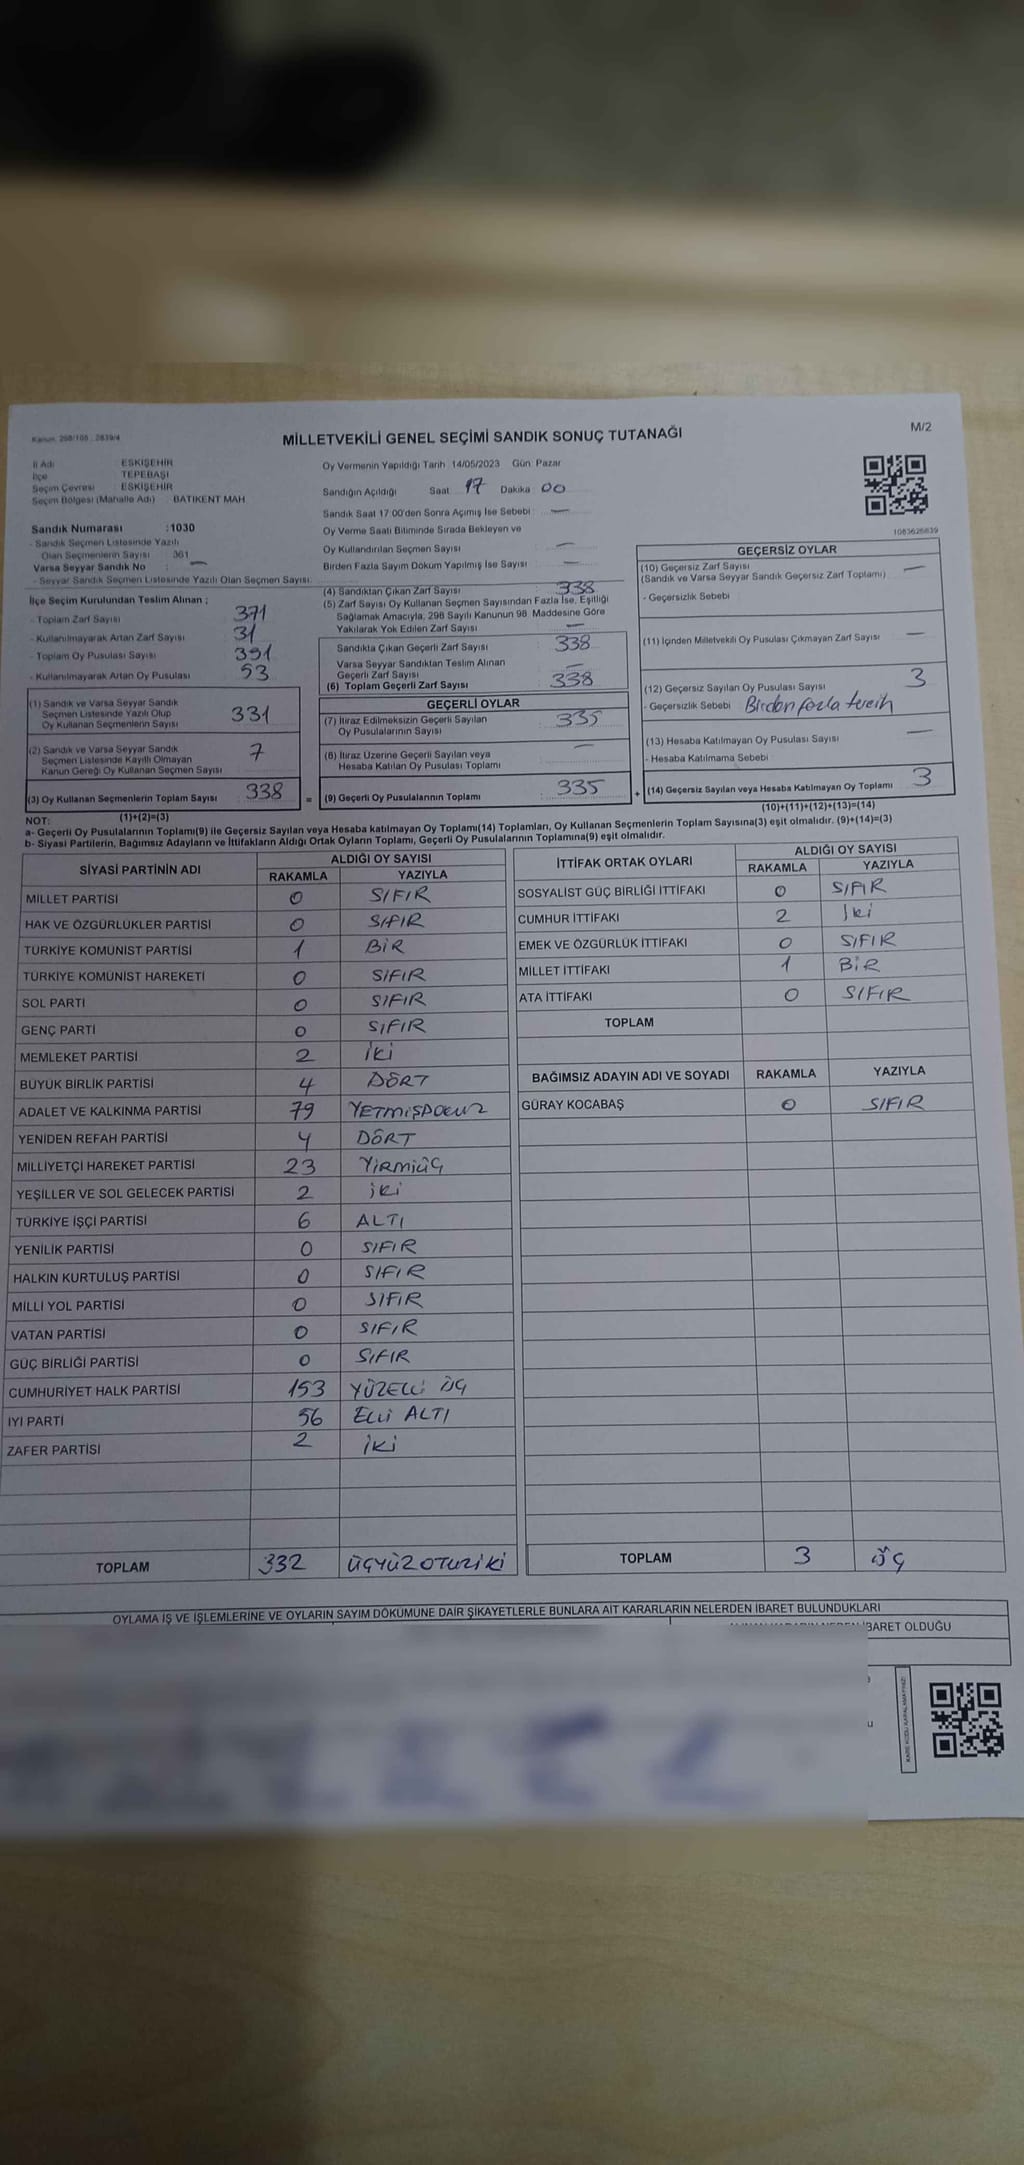 Kanun: 298/105 , 2839/4
MİLLETVEKİLİ GENEL SEÇİMİ SANDIK SONUÇ TUTANAĞI
M/2
İl Adı : ESKİŞEHİR
İlçe : TEPEBAŞI
Seçim Çevresi : ESKİŞEHİR
Seçim Bölgesi (Mahalle Adı) : BATIKENT MAH
Sandık Numarası :1030
- Sandık Seçmen Listesinde Yazılı
Olan Seçmenlerin Sayısı : 361
Varsa Seyyar Sandık No : —
- Seyyar Sandık Seçmen Listesinde Yazılı Olan Seçmen Sayısı:
İlçe Seçim Kurulundan Teslim Alınan ;
- Toplam Zarf Sayısı 371
- Kullanılmayarak Artan Zarf Sayısı 31
- Toplam Oy Pusulası Sayısı 391
- Kullanılmayarak Artan Oy Pusulası 53
(1) Sandık ve Varsa Seyyar Sandık
Seçmen Listesinde Yazılı Olup
Oy Kullanan Seçmenlerin Sayısı 331
(2) Sandık ve Varsa Seyyar Sandık
Seçmen Listesinde Kayıtlı Olmayan
Kanun Gereği Oy Kullanan Seçmen Sayısı 7
(3) Oy Kullanan Seçmenlerin Toplam Sayısı 338
(1)+(2)=(3)
Oy Vermenin Yapıldığı Tarih 14/05/2023 Gün: Pazar
Sandığın Açıldığı Saat 17 Dakika 00
Sandık Saat 17:00'den Sonra Açılmış İse Sebebi : —
Oy Verme Saati Bitiminde Sırada Bekleyen ve
Oy Kullandırılan Seçmen Sayısı —
Birden Fazla Sayım Döküm Yapılmış İse Sayısı —
(4) Sandıktan Çıkan Zarf Sayısı 338
(5) Zarf Sayısı Oy Kullanan Seçmen Sayısından Fazla İse, Eşitliği
Sağlamak Amacıyla, 298 Sayılı Kanunun 98. Maddesine Göre
Yakılarak Yok Edilen Zarf Sayısı —
Sandıkta Çıkan Geçerli Zarf Sayısı 338
Varsa Seyyar Sandıktan Teslim Alınan
Geçerli Zarf Sayısı —
(6) Toplam Geçerli Zarf Sayısı 338
GEÇERLİ OYLAR
(7) İtiraz Edilmeksizin Geçerli Sayılan
Oy Pusulalarının Sayısı 335
(8) İtiraz Üzerine Geçerli Sayılan veya
Hesaba Katılan Oy Pusulası Toplamı —
= (9) Geçerli Oy Pusulalarının Toplamı 335 +
1083626839
GEÇERSİZ OYLAR
(10) Geçersiz Zarf Sayısı —
(Sandık ve Varsa Seyyar Sandık Geçersiz Zarf Toplamı)
- Geçersizlik Sebebi
(11) İçinden Milletvekili Oy Pusulası Çıkmayan Zarf Sayısı —
(12) Geçersiz Sayılan Oy Pusulası Sayısı 3
- Geçersizlik Sebebi Birden fazla tercih
(13) Hesaba Katılmayan Oy Pusulası Sayısı —
- Hesaba Katılmama Sebebi
(14) Geçersiz Sayılan veya Hesaba Katılmayan Oy Toplamı 3
(10)+(11)+(12)+(13)=(14)
NOT:
a- Geçerli Oy Pusulalarının Toplamı(9) ile Geçersiz Sayılan veya Hesaba katılmayan Oy Toplamı(14) Toplamları, Oy Kullanan Seçmenlerin Toplam Sayısına(3) eşit olmalıdır. (9)+(14)=(3)
b- Siyasi Partilerin, Bağımsız Adayların ve İttifakların Aldığı Ortak Oyların Toplamı, Geçerli Oy Pusulalarının Toplamına(9) eşit olmalıdır.
SİYASİ PARTİNİN ADI ALDIĞI OY SAYISI
RAKAMLA YAZIYLA
MİLLET PARTİSİ 0 SIFIR
HAK VE ÖZGÜRLÜKLER PARTİSİ 0 SIFIR
TÜRKİYE KOMÜNİST PARTİSİ 1 BİR
TÜRKİYE KOMÜNİST HAREKETİ 0 SIFIR
SOL PARTİ 0 SIFIR
GENÇ PARTİ 0 SIFIR
MEMLEKET PARTİSİ 2 iki
BÜYÜK BİRLİK PARTİSİ 4 DÖRT
ADALET VE KALKINMA PARTİSİ 79 YETMİŞDOKUZ
YENİDEN REFAH PARTİSİ 4 DÖRT
MİLLİYETÇİ HAREKET PARTİSİ 23 YİRMİÜÇ
YEŞİLLER VE SOL GELECEK PARTİSİ 2 iki
TÜRKİYE İŞÇİ PARTİSİ 6 ALTI
YENİLİK PARTİSİ 0 SIFIR
HALKIN KURTULUŞ PARTİSİ 0 SIFIR
MİLLİ YOL PARTİSİ 0 SIFIR
VATAN PARTİSİ 0 SIFIR
GÜÇ BİRLİĞİ PARTİSİ 0 SIFIR
CUMHURİYET HALK PARTİSİ 153 YÜZELLİ ÜÇ
İYİ PARTİ 56 ELLİ ALTI
ZAFER PARTİSİ 2 iki
TOPLAM 332 ÜÇYÜZOTUZİKİ
İTTİFAK ORTAK OYLARI ALDIĞI OY SAYISI
RAKAMLA YAZIYLA
SOSYALİST GÜÇ BİRLİĞİ İTTİFAKI 0 SIFIR
CUMHUR İTTİFAKI 2 iki
EMEK VE ÖZGÜRLÜK İTTİFAKI 0 SIFIR
MİLLET İTTİFAKI 1 BİR
ATA İTTİFAKI 0 SIFIR
TOPLAM
BAĞIMSIZ ADAYIN ADI VE SOYADI RAKAMLA YAZIYLA
GÜRAY KOCABAŞ 0 SIFIR
TOPLAM 3 ÜÇ
OYLAMA İŞ VE İŞLEMLERİNE VE OYLARIN SAYIM DÖKÜMÜNE DAİR ŞİKAYETLERLE BUNLARA AİT KARARLARIN NELERDEN İBARET BULUNDUKLARI
İBARET OLDUĞU